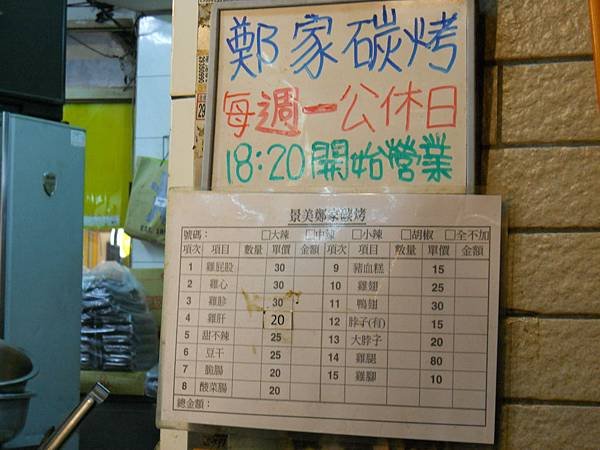 鄭家碳烤
每週一公休日
18:20開始營業
景美鄭家碳烤
號碼： □大辣 □中辣 □小辣 □胡椒 □全不加
項次 項目 數量 單價 金額 項次 項目 數量 單價 金額
1 雞屁股 30 9 豬血糕 15
2 雞心 30 10 雞翅 25
3 雞胗 30 11 鴨翅 30
4 雞肝 20 12 脖子(有) 15
5 甜不辣 25 13 大脖子 20
6 豆干 25 14 雞腿 80
7 脆腸 20 15 雞腳 10
8 酸菜腸 20
總金額：